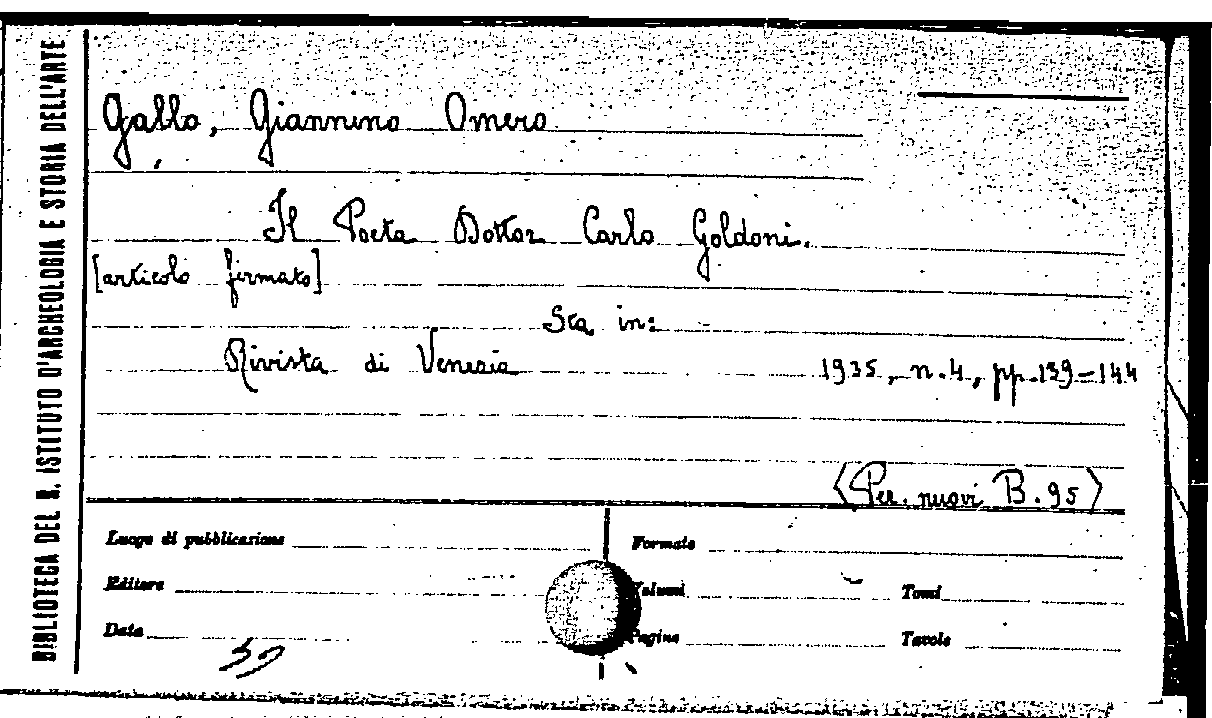 BIBLIOTECA DEL R. ISTITUTO D'ARCHEOLOGIA E STORIA DELL'ARTE
Gallo, Giannino Omero
Il Poeta Dottor Carlo Goldoni.
[articolo firmato]
Sta in:
Rivista di Venezia 1935, n.4, pp.139-144
<Per. nuovi B.95>
Luogo di pubblicazione Formato
Editore Volumi Tomi
Data Pagine Tavole